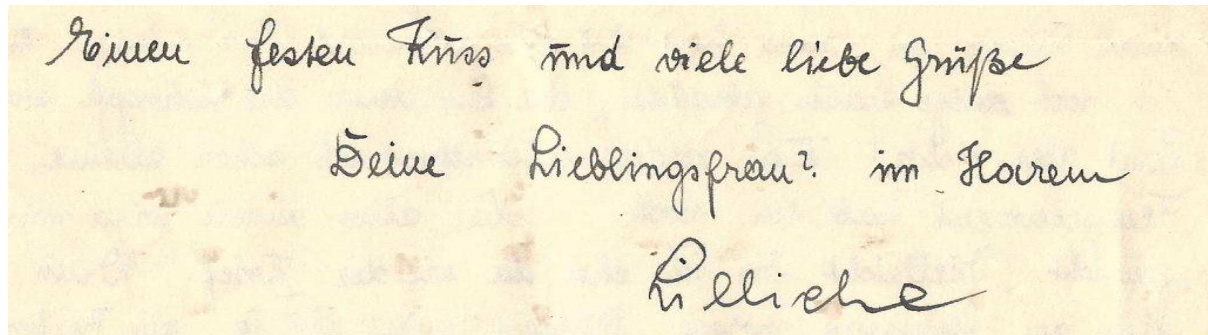 Einen festen Kuss und viele liebe Grüße
Deine Lieblingsfrau? im Harem